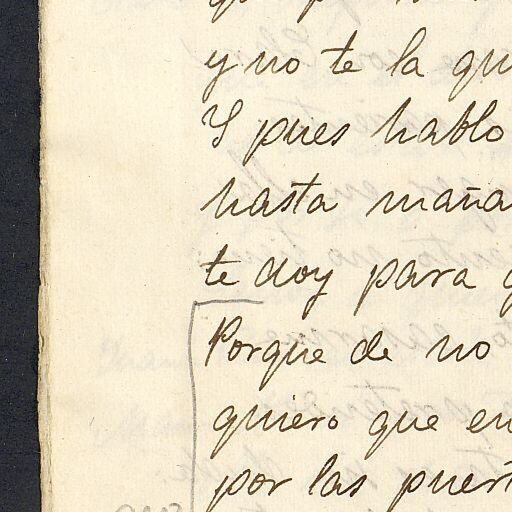 y no te la qu
Y pues hablo
hasta mañana
te doy para q
Porque de no
quiero que en
por las puert